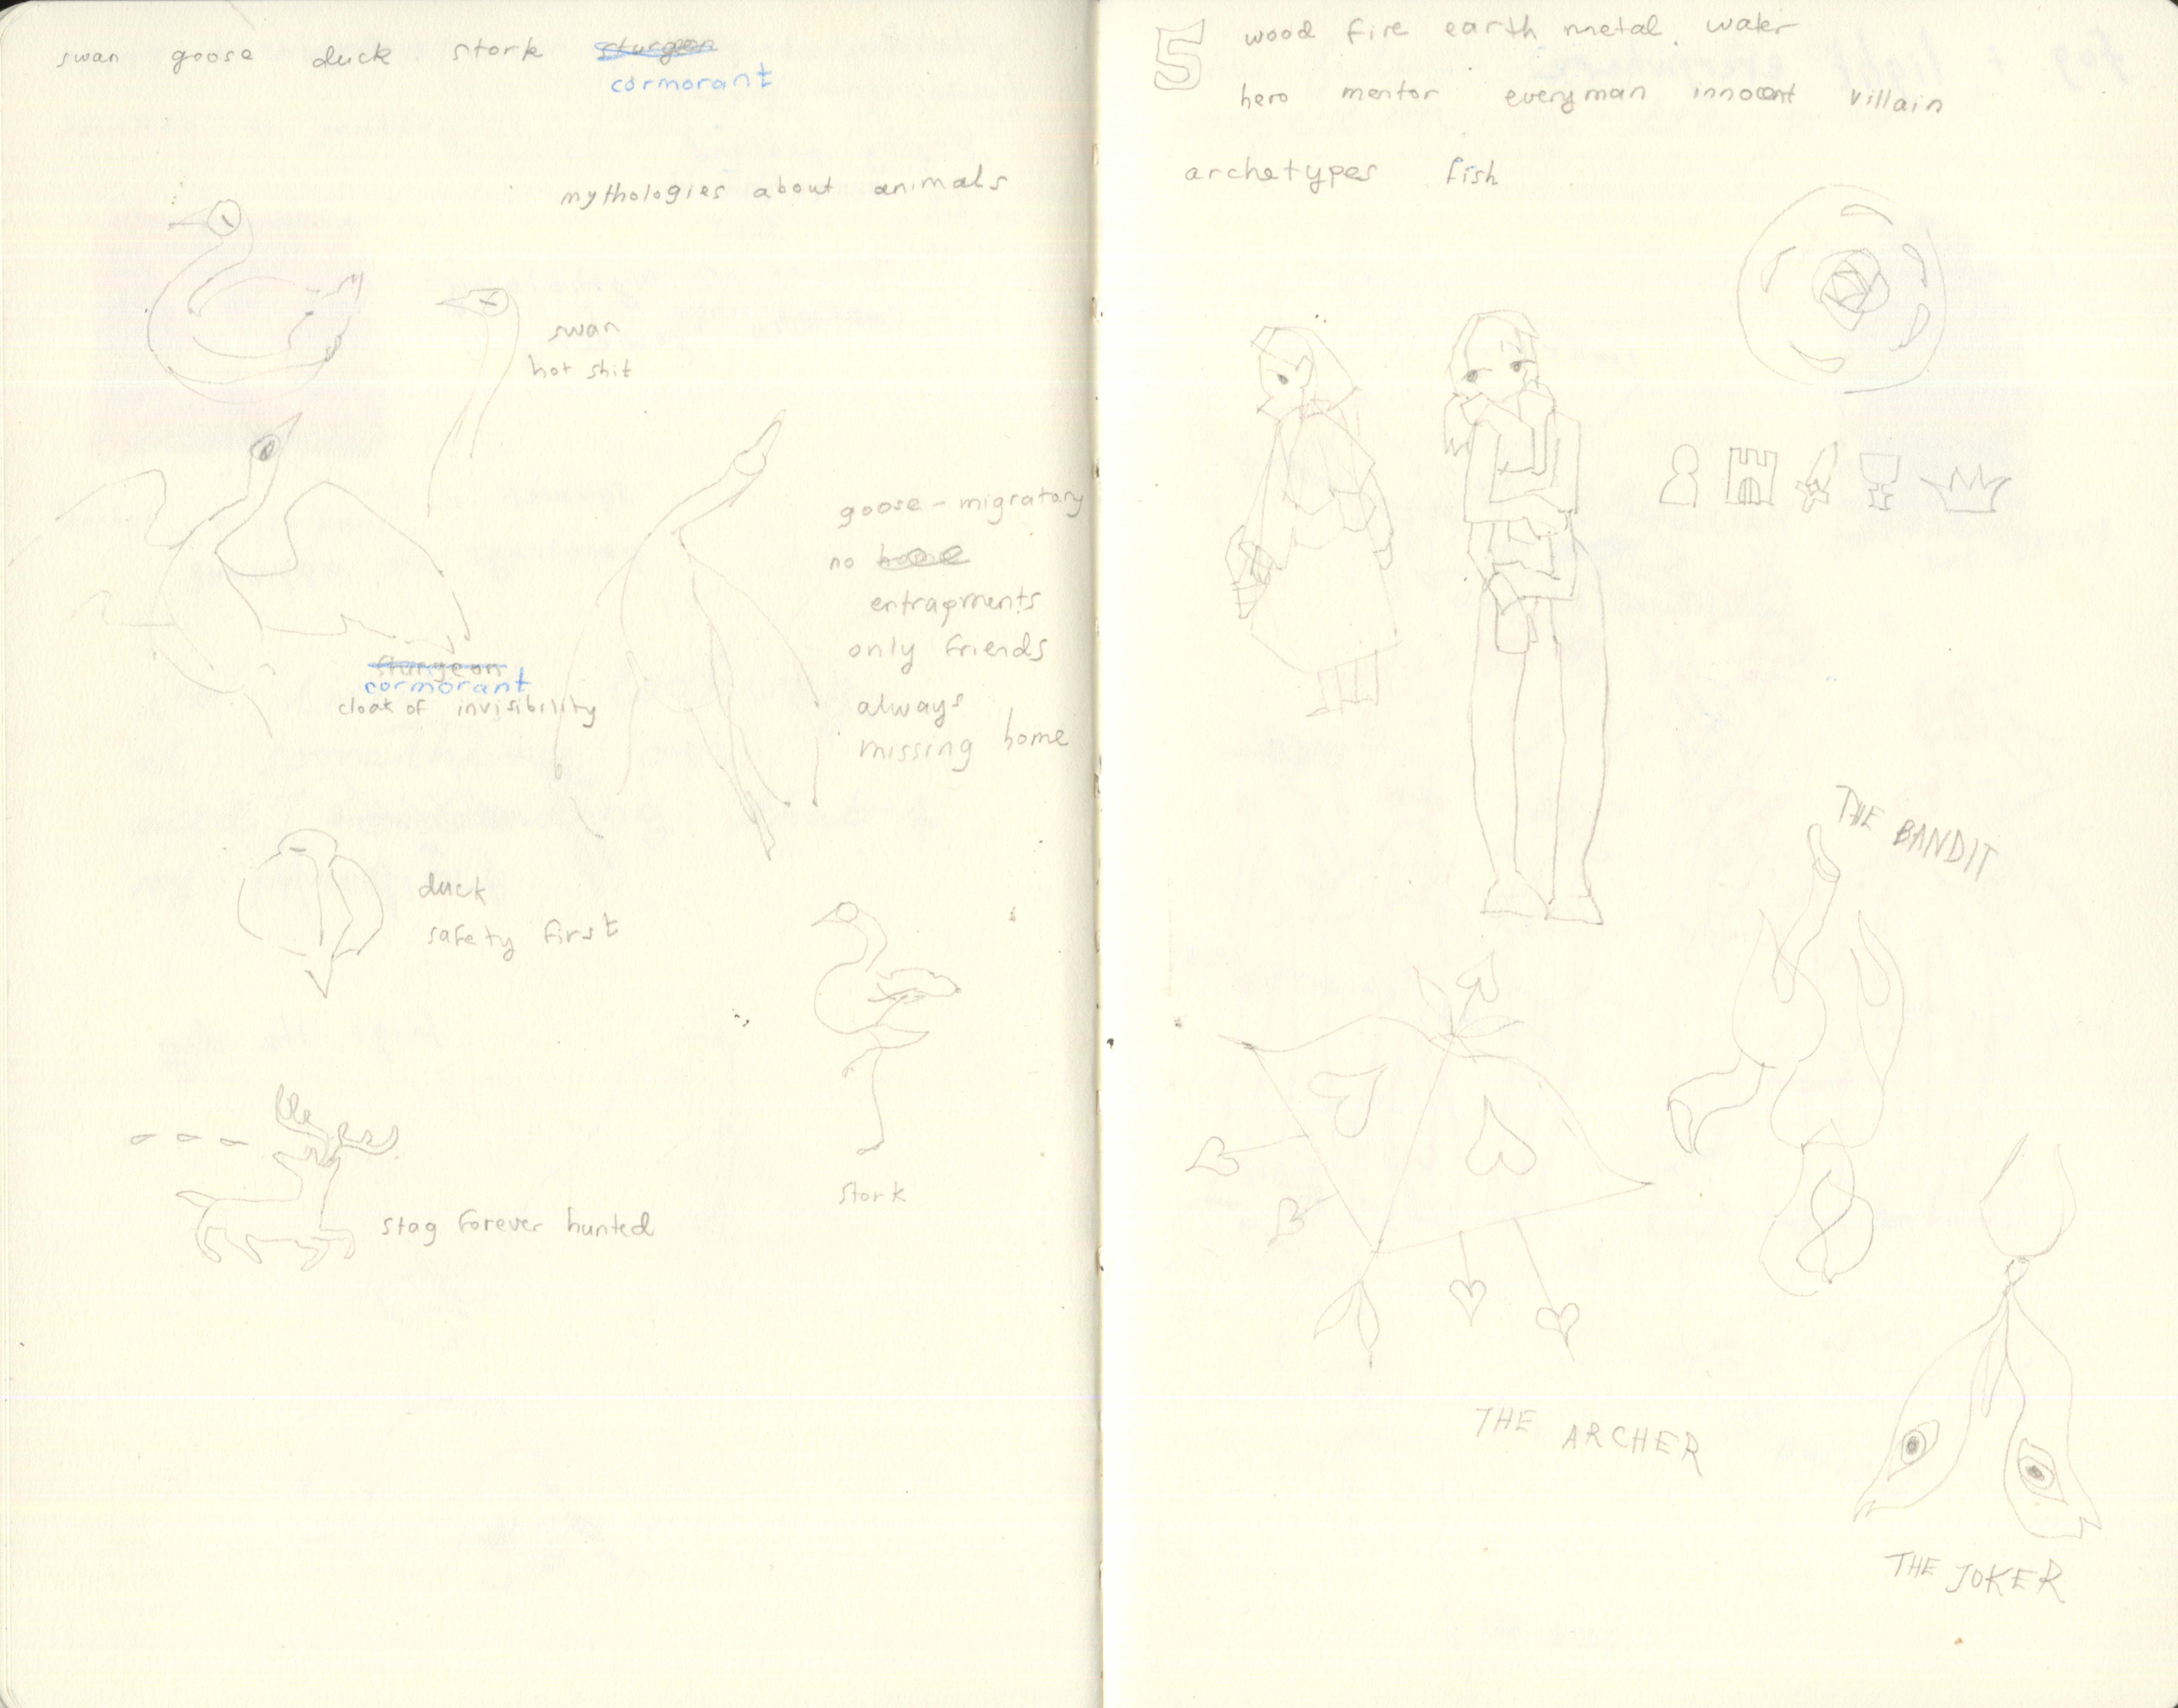 swan goose duck stork sturgeon
cormorant
mythologies about animals
swan
hot shit
goose - migratory
no home
entrapments
only friends
always
missing home
sturgeon
cormorant
cloak of invisibility
duck
safety first
stork
stag forever hunted
5
wood fire earth metal water
hero mentor everyman innocent villain
archetypes fish
THE BANDIT
THE ARCHER
THE JOKER